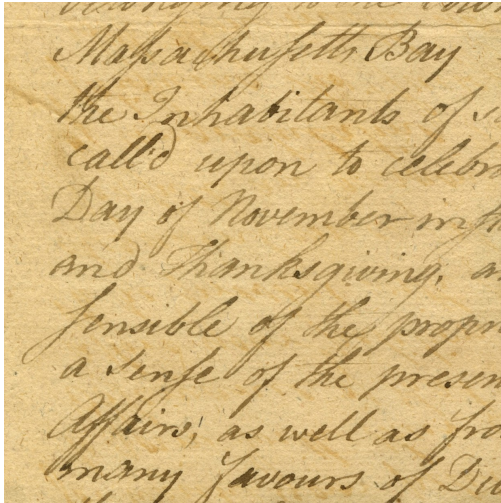 belonging to the
Massachusetts Bay
the Inhabitants of
call'd upon to celebra
Day of November inst
and Thanksgiving, a
sensible of the propri
a sense of the presen
Affairs, as well as fro
many favours of D